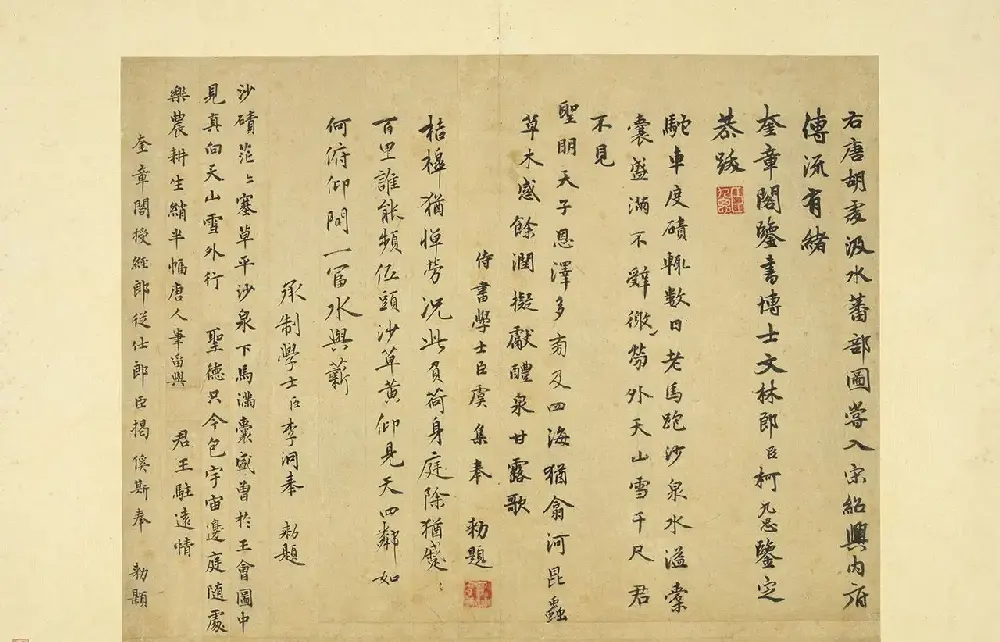 右唐胡虔汲水蕃部圖嘗入宋紹興內府
傳流有緒
奎章閣鑒書博士文林郎臣柯九思鑒定
恭跋
駝車度磧輒數日老馬跑沙泉水溢橐
囊盛滿不辭微勞外天山雪千尺君
不見
聖明天子恩澤多育及四海猶翕河昆蟲
草木感餘潤擬獻醴泉甘露歌
侍書學士臣虞集奉 勅題
桔槔猶憚勞況此負荷身庭除猶蹇〻
百里誰能頻低頭沙草黃仰見天四鄰如
何俯仰間一富水與薪
承制學士臣李泂奉 勅題
沙磧茫〻塞草平沙泉下馬滿囊盛曾於王會圖中
見真向天山雪外行 聖德只今包宇宙邊庭隨處
樂農耕生綃半幅唐人筆留興 君王駐遠情
奎章閣授經郎從仕郎臣揭傒斯奉 勅題